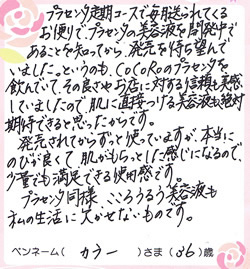 プラセンタ定期コースで毎月送られてくる
お便りで、プラセンタの美容液を開発中で
あることを知ってから、発売を待ち望んで
いました。というのも、CoCoRoのプラセンタを
飲んでいて、その良さやお店に対する信頼も実感
していましたので、肌に直接つける美容液も絶対
期待できると思ったからです。
発売されてからずっと使っていますが、本当に
のびが良くて肌がもちっとした感じになるので、
少量でも満足できる使用感です。
プラセンタ同様、こころうるう美容液も
私の生活に欠かせないものです。
ペンネーム( カラー )さま(36)歳